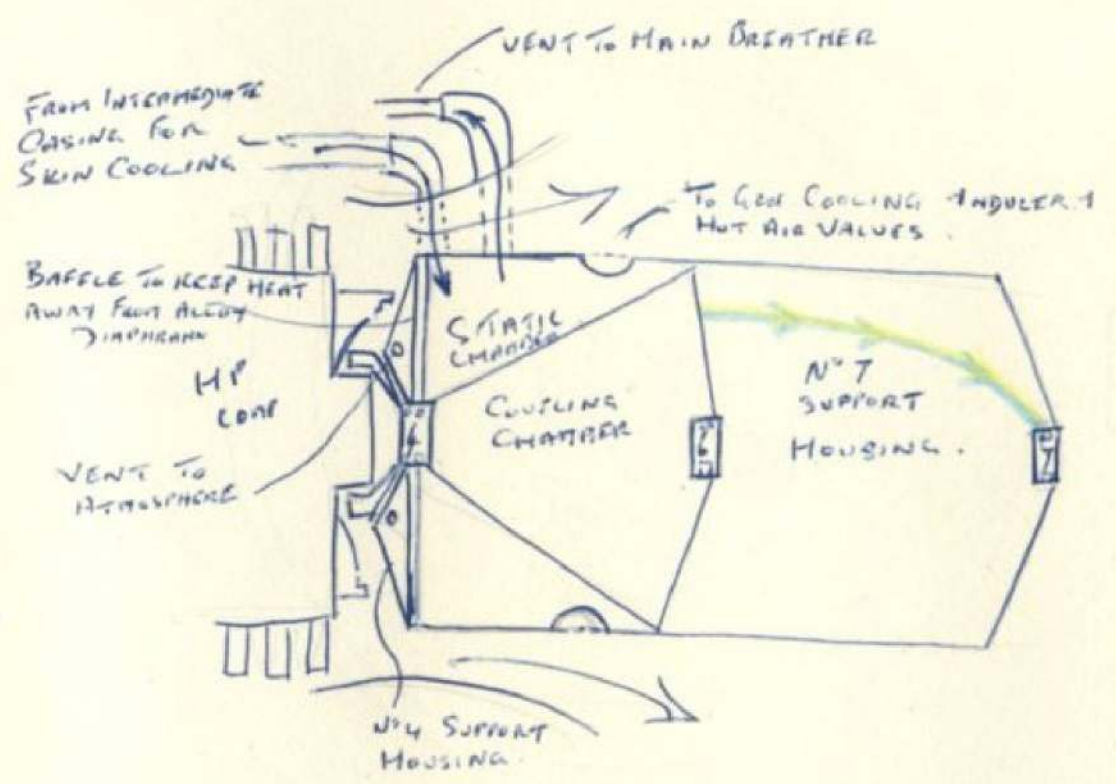 VENT TO MAIN BREATHER
FROM INTERMEDIATE
CASING FOR
SKIN COOLING
TO GEN COOLING
HOT AIR VALVES.
BAFFLE TO KEEP HEAT
AWAY FROM ALLOY
DIAPHRAGM
STATIC
CHAMBER
HP
COMP
COUPLING
CHAMBER
Nº 7
SUPPORT
HOUSING.
4
6
7
VENT TO
ATMOSPHERE
Nº 4 SUPPORT
HOUSING.